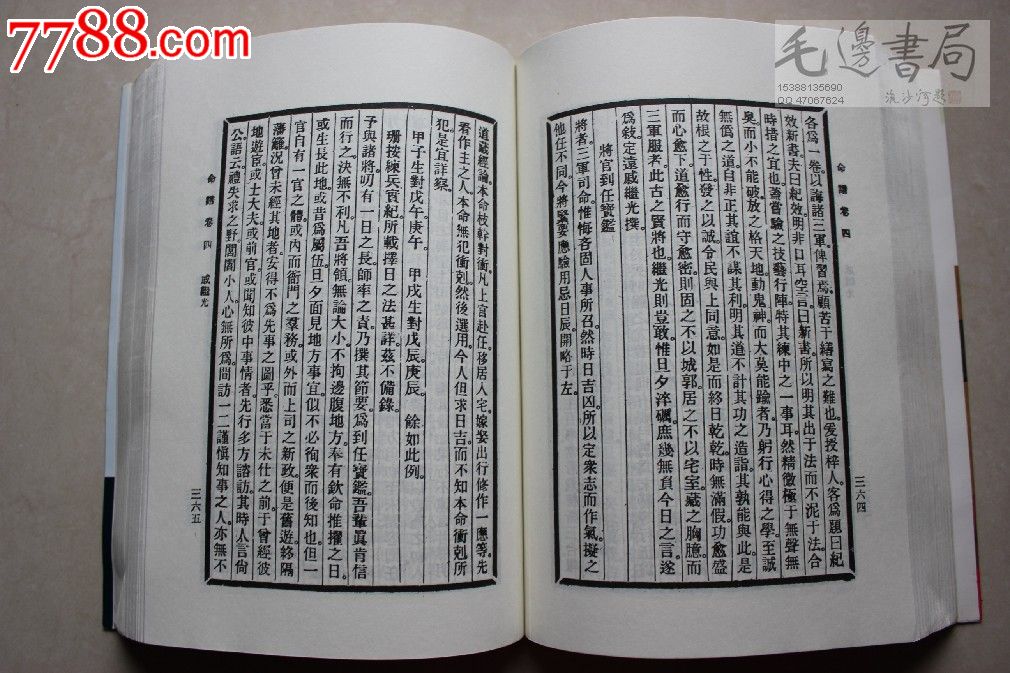 7788.com
毛邊書局
15388135690
QQ 47067624
流沙河題
命譜卷四
三六四
各爲一卷以誨諸三軍俾習焉顧苦于繕寫之難也爰授梓人客爲題曰紀
效新書夫曰紀效明非口耳空言曰新書所以明其出于法而不泥于法合
時措之宜也蓋嘗驗之技藝行陣特其練中之一事耳然精微極于無聲無
臭而小不能破放之格天地動鬼神而大莫能踰者乃躬行心得之學至誠
無僞之道自非正其誼不謀其利明其道不計其功之造詣其孰能與此是
故根之于性發之以誠令民與上同意如是而終日乾乾時無滿假功愈盛
而心愈下道愈行而守愈密則固之不以城郭居之不以宅室藏之胸臆而
三軍服者此古之賢將也繼光則豈敢惟旦夕淬礪庶幾無負今日之言遂
爲敍定遠戚繼光撰
將官到任寶鑑
將者三軍司命惟悔吝固人事所召然時日吉凶所以定衆志而作氣擬之
他任不同今將緊要應驗用忌日辰開略于左
道藏經論本命枝幹對衝凡上官赴任移居入宅嫁娶出行修作一應等先
看作主之人本命無犯衝剋然後選用今人但求日吉而不知本命衝剋所
犯是宜詳察
甲子生對戊午庚午 甲戌生對戊辰庚辰 餘如此例
珊按練兵實紀所載擇日之法甚詳茲不備錄
予與諸將叨有一日之長師率之責乃撰其節要爲到任寶鑑吾輩眞肯信
而行之決無不利凡吾將領無論大小不拘邊腹地方奉有欽命推擢之日
或生長此地或昔爲屬伍旦夕面見地方事宜似不必徇衆而後知也但一
官自有一官之體或內而衙門之羣務或外而上司之新政便是舊遊終隔
藩籬況曾未經其地者安得不爲先事之圖乎悉當于未仕之前于曾經彼
地遊宦或士大夫或前官或聞知彼中事情者先行多方諮訪其時人言尙
公語云禮失求之野閭閻小人心無所爲間訪一二謹愼知事之人亦無不
命譜卷四 戚繼光
三六五